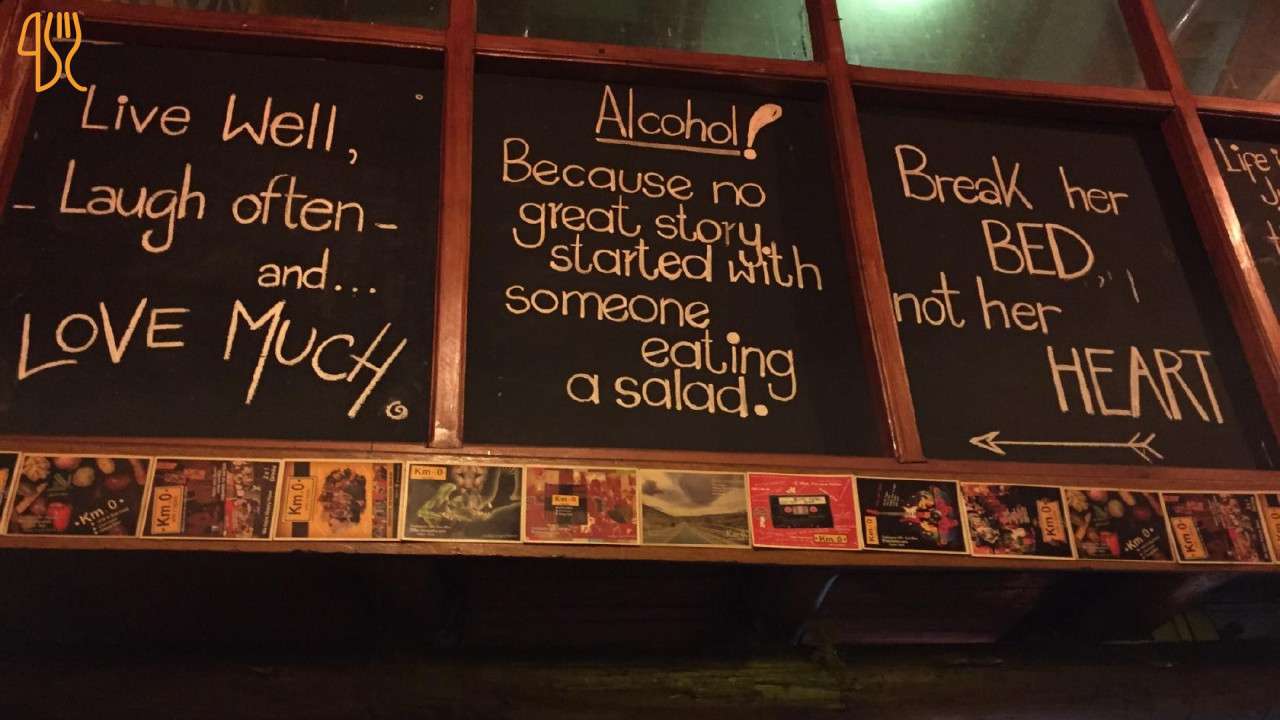 Live Well,
- Laugh often -
and...
LOVE MUCH
Alcohol!
Because no
great story
started with
someone
eating
a salad.
Break her
BED,
not her
HEART
Life
Km·0
Km·0
Km·0
Km·0
Km·0
Km·0
Km·0
Km·0
Km·0
Km·0
Km·0